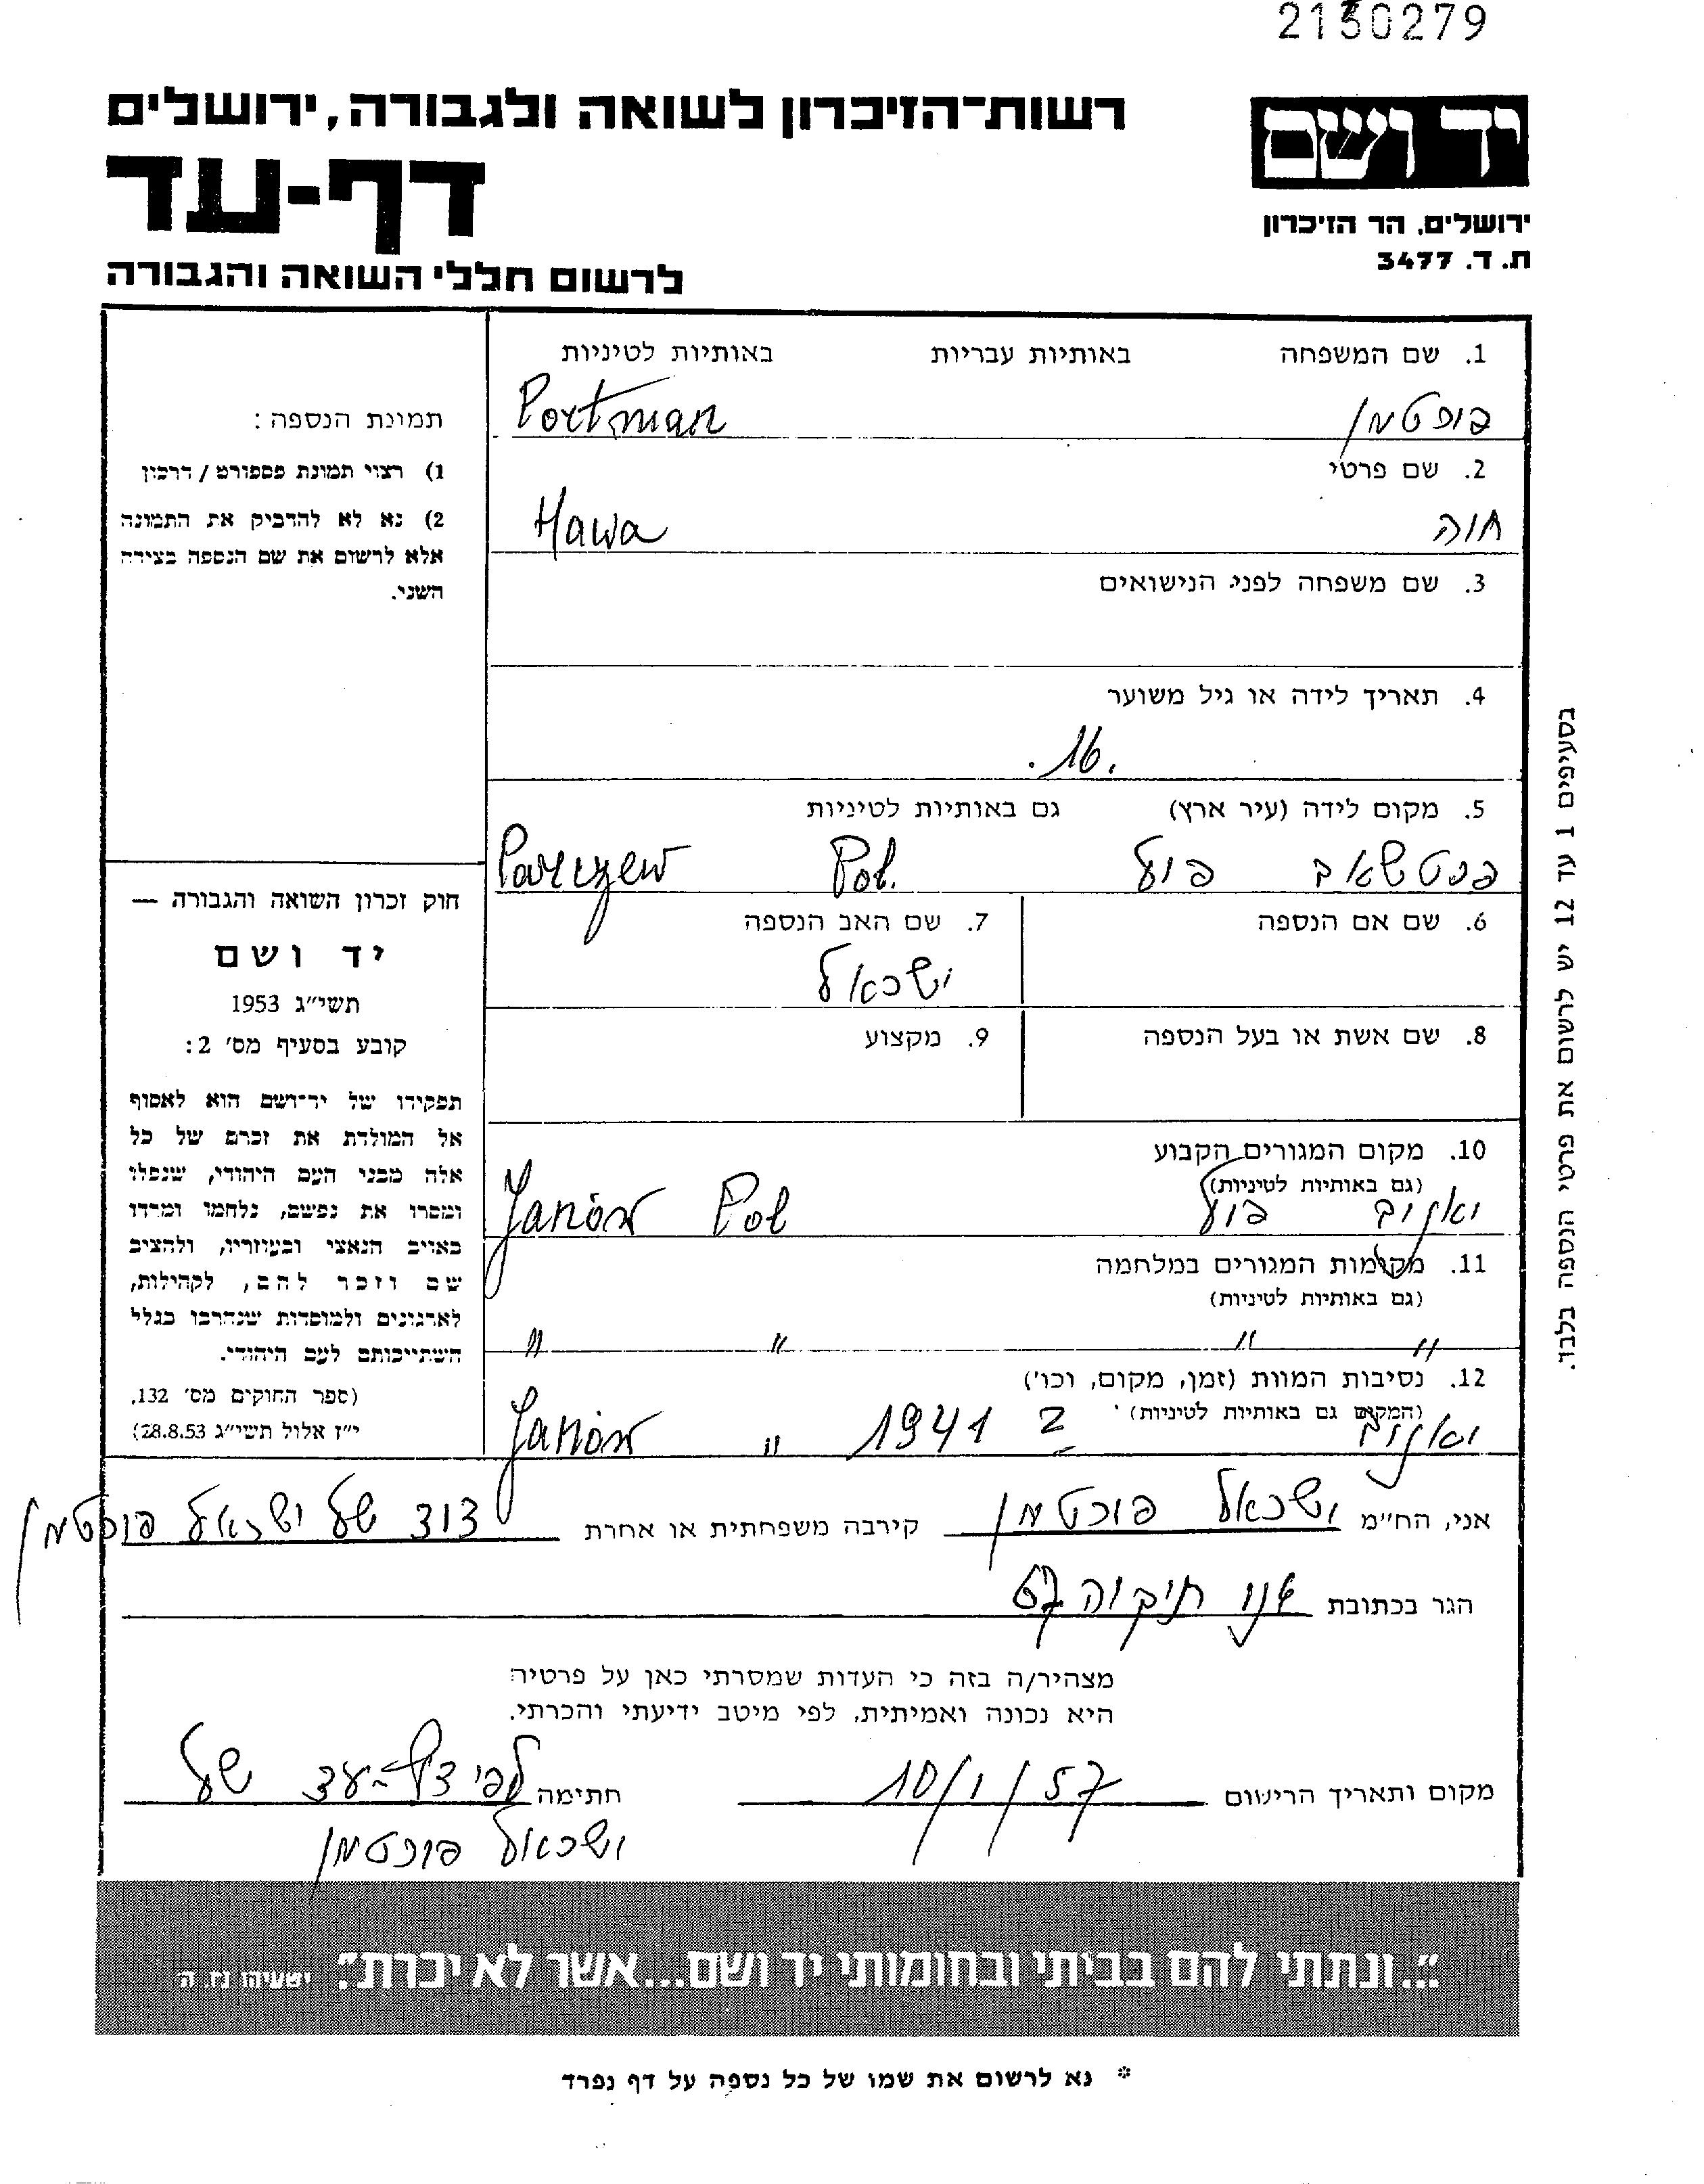 2130279
רשות־הזיכרון לשואה ולגבורה, ירושלים
יד ושם
דף-עד
ירושלים, הר הזיכרון
ת. ד. 3477
לרשום חללי השואה והגבורה
1. שם המשפחה באותיות עבריות באותיות לטיניות
פורטמן Portman
2. שם פרטי
חוה Hawa
3. שם משפחה לפני הנישואים
4. תאריך לידה או גיל משוער
.16.
5. מקום לידה (עיר ארץ) גם באותיות לטיניות
פרטשאב פול Pol. Parczew
6. שם אם הנספה
7. שם האב הנספה
ישראל
8. שם אשת או בעל הנספה
9. מקצוע
10. מקום המגורים הקבוע
(גם באותיות לטיניות)
יאנוב פול Janów Pol
11. מקומות המגורים במלחמה
(גם באותיות לטיניות)
" " " "
12. נסיבות המוות (זמן, מקום, וכו')
(המקום גם באותיות לטיניות)
יאנוב 2 1941 " Janów
תמונת הנספה:
1) רצוי תמונת פספורט / דרכון
2) נא לא להדביק את התמונה
אלא לרשום את שם הנספה בצידה
השני.
חוק זכרון השואה והגבורה —
יד ושם
תשי"ג 1953
קובע בסעיף מס' 2:
תפקידו של יד־ושם הוא לאסוף
אל המולדת את זכרם של כל
אלה מבני העם היהודי, שנפלו
ומסרו את נפשם, נלחמו ומרדו
באויב הנאצי ובעוזריו, ולהציב
שם וזכר להם, לקהילות,
לארגונים ולמוסדות שנחרבו בגלל
השתייכותם לעם היהודי.
(ספר החוקים מס' 132,
י"ז אלול תשי"ג 28.8.53)
בסעיפים 1 עד 12 יש לרשום את פרטי הנספה בלבד.
אני, הח"מ ישראל פורטמן קירבה משפחתית או אחרת דוד של ישראל פורטמן
הגר בכתובת תיקוה 67
מצהיר/ה בזה כי העדות שמסרתי כאן על פרטיה
היא נכונה ואמיתית, לפי מיטב ידיעתי והכרתי.
מקום ותאריך הרישום 10/1/57 חתימה לפי דף-עד של
ישראל פורטמן
"...ונתתי להם בביתי ובחומותי יד ושם...אשר לא יכרת". ישעיהו נו, ה
* נא לרשום את שמו של כל נספה על דף נפרד